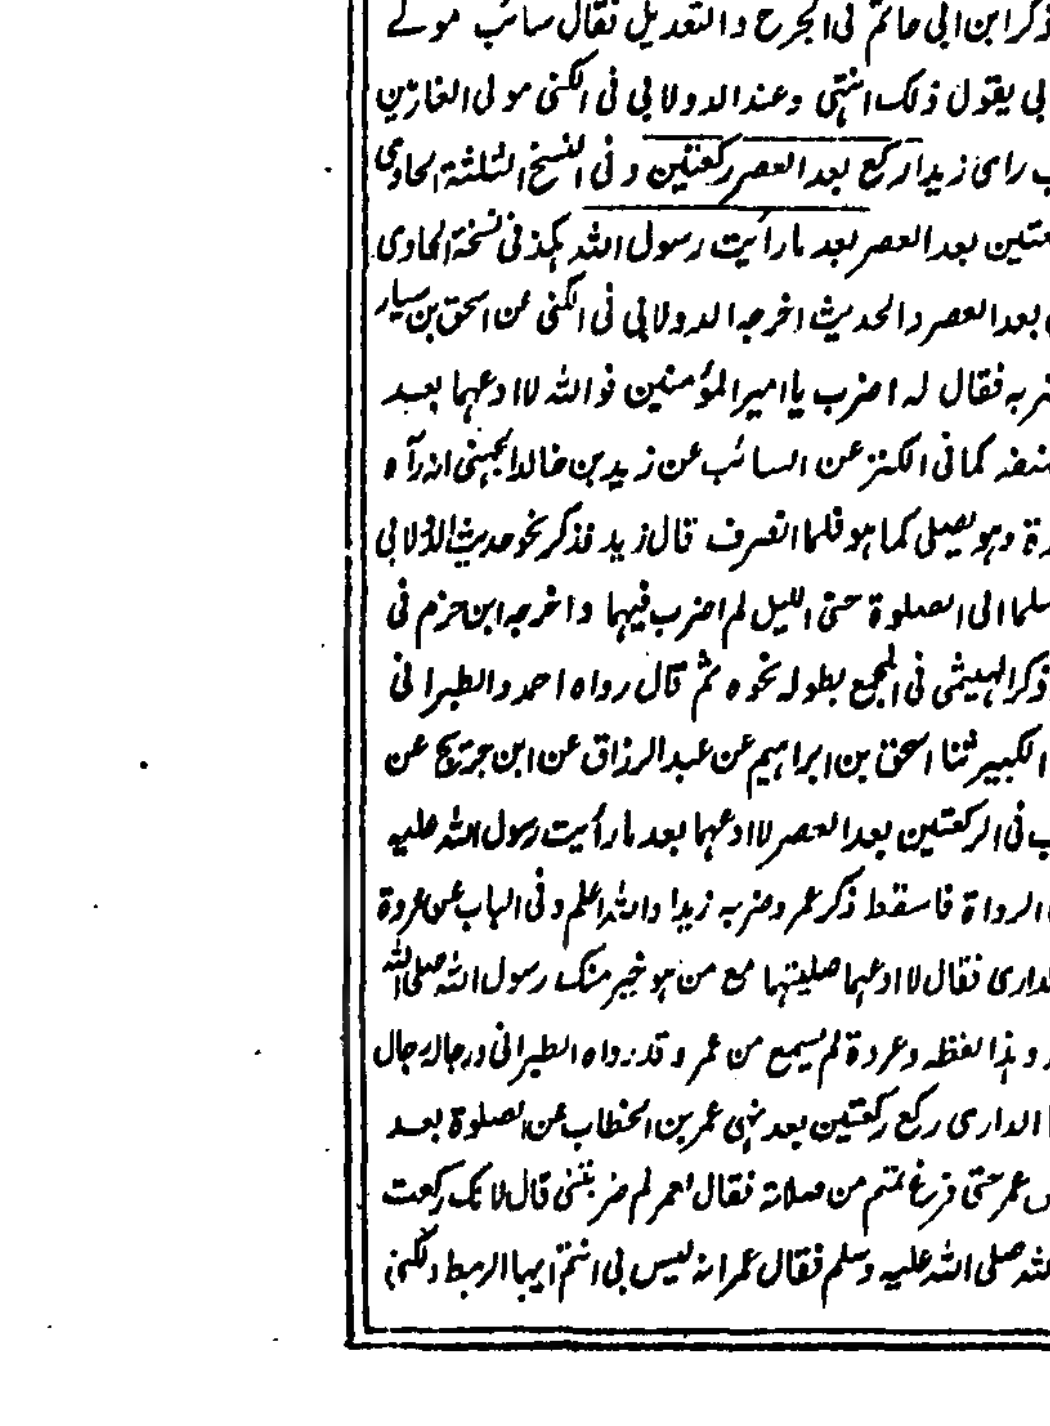 ذكر ابن ابی حاتم فی الجرح والتعديل فقال سائب مولے
بی يقول ذلک انتهی وعند الدولابی فی الکنی مولی الفارٰين
رای زيدا ركع بعد العصر ركعتين و فی النسخ الثلثة الحاوی
عتين بعد العصر بعد ما رأيت رسول الله هكذ فی نسخة الحاوی
بعد العصر والحديث اخرجه الدولابی فی الکنی عن اسحق بن سيار
ضربه فقال له اضرب يا امير المؤمنين فوالله لا ادعهما بعد
كما فی الكنز عن السائب عن زيد بن خالد الجهنی انه رآه
وهو يصلی كما هو فلما انصرف قال زيد فذكر نحو حديث الدولابی
سلما الی الصلوة حتی الليل لم اضرب فيهما واخرجه ابن حزم فی
ذكر الهيثمی فی المجمع بطوله نحوه ثم قال رواه احمد والطبرانی
الكبير ثنا اسحق بن ابراهيم عن عبد الرزاق عن ابن جريج عن
فی الركعتين بعد العصر لا ادعهما بعد ما رأيت رسول الله عليه
الرواة فاسقط ذكر عمر وضربه زيدا والله اعلم وفی الباب عن عروة
لداری فقال لا ادعهما صليتهما مع من هو خير منک رسول الله صلی الله
و هذا لفظه وعروة لم يسمع من عمر و قد رواه الطبرانی ورجاله رجال
الداری ركع ركعتين بعد نهی عمر بن الخطاب عن الصلوة بعد
عمر حتی فرغ تميم من صلاته فقال لعمر لم ضربتنی قال لانک ركعت
لله صلی الله عليه وسلم فقال عمر انه ليس بی انتم ايها الرهط ولكنی